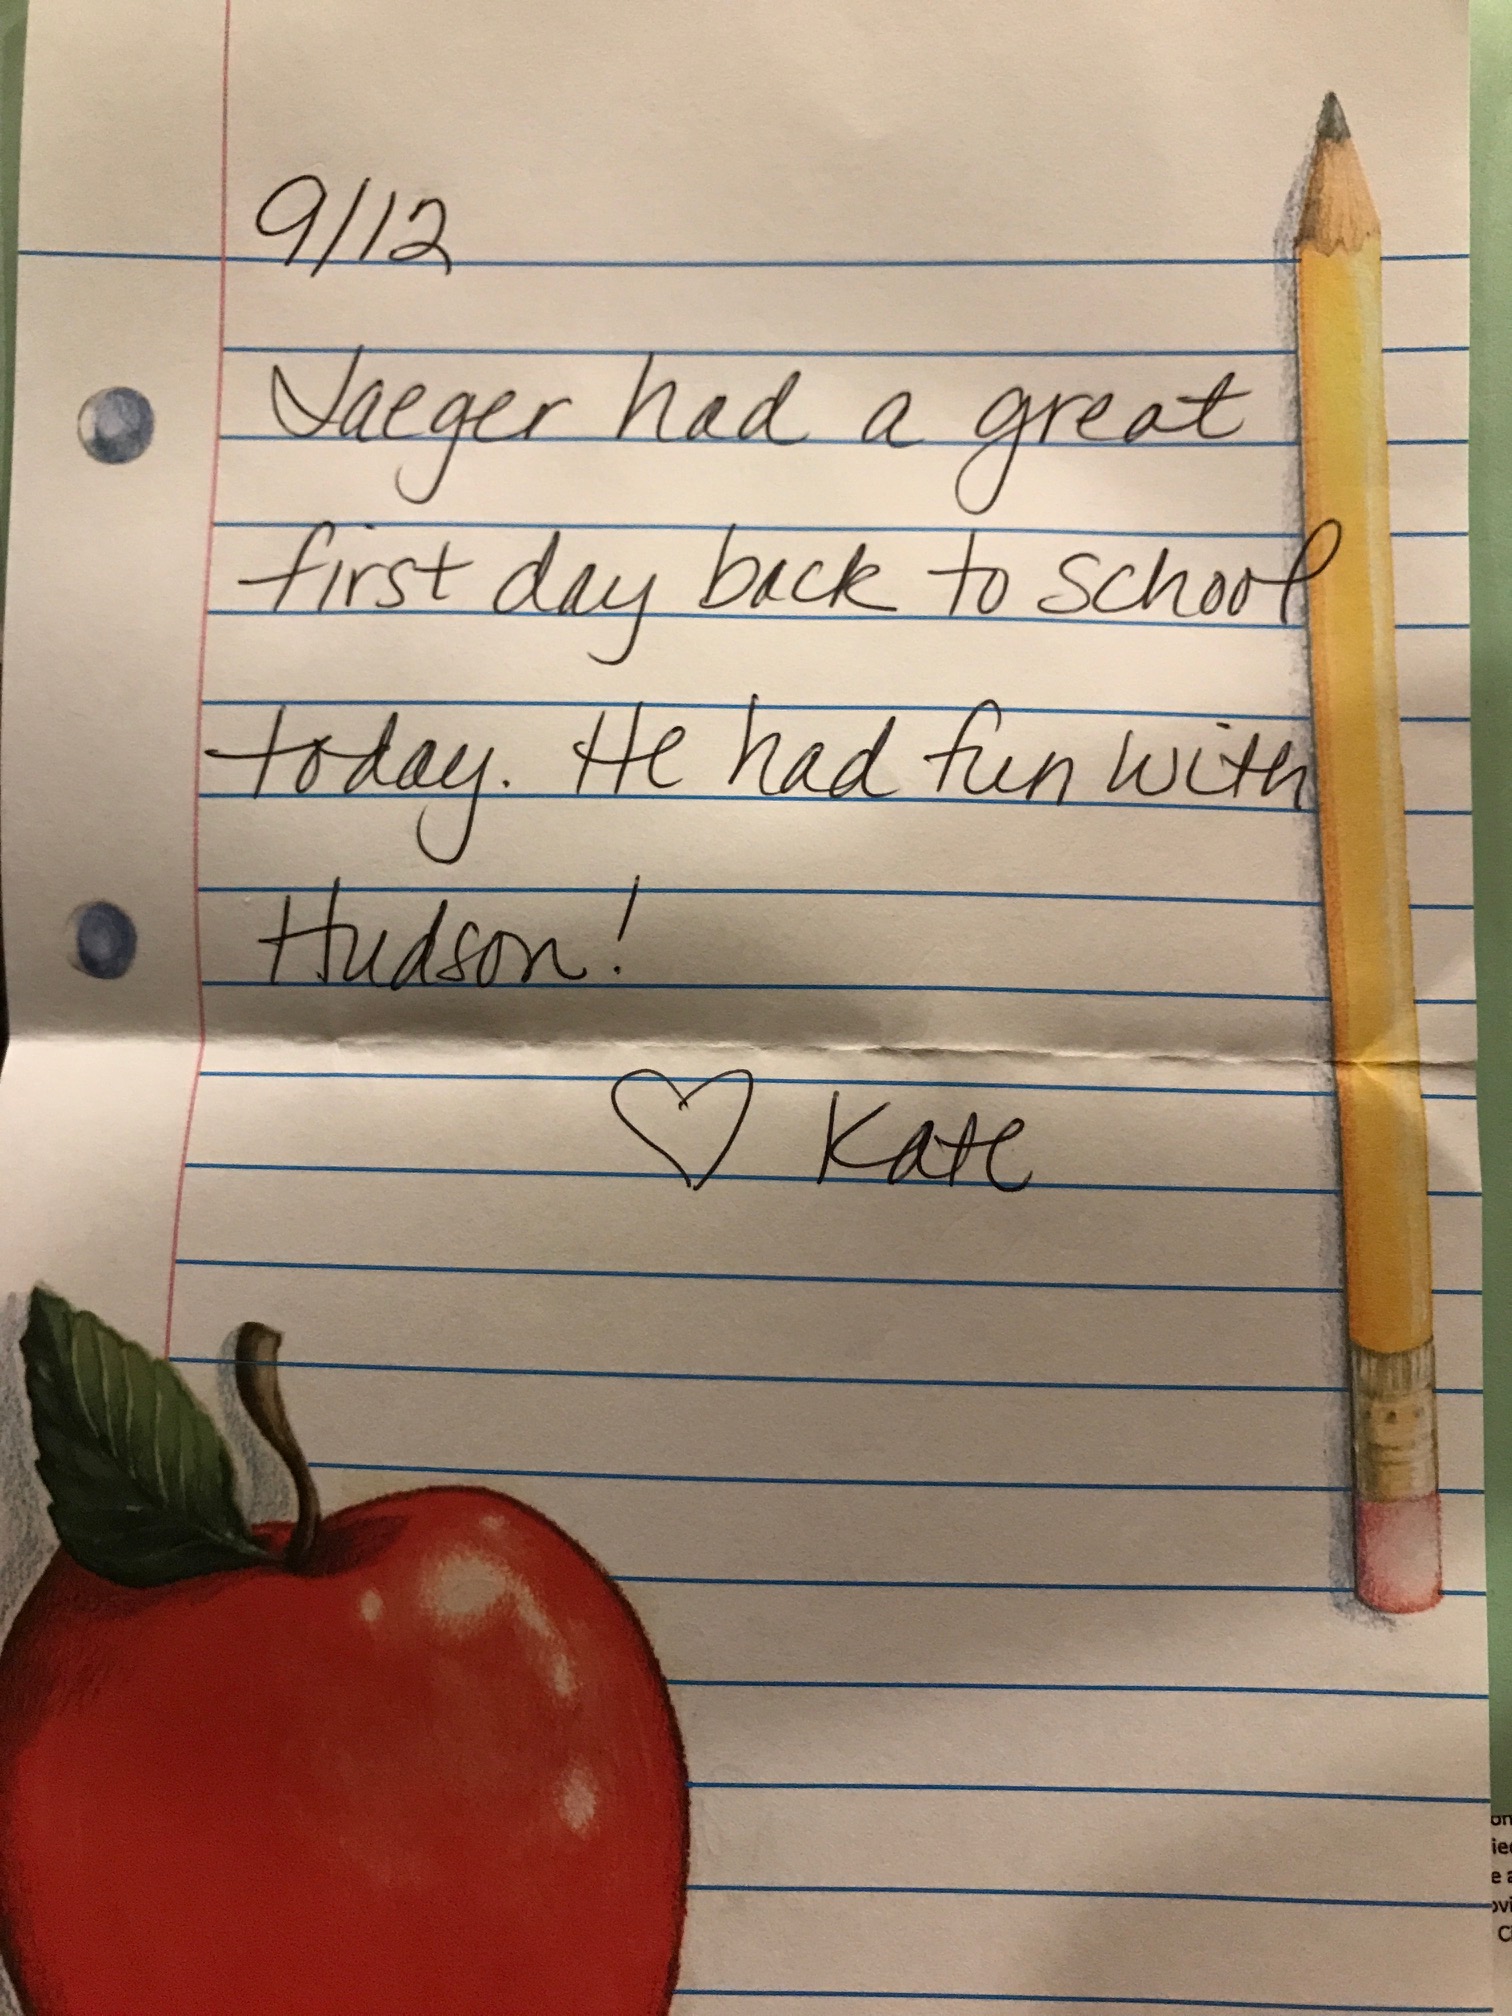 9/12
Jaeger had a great
first day back to school
today. He had fun with
Hudson!
♡ Kate